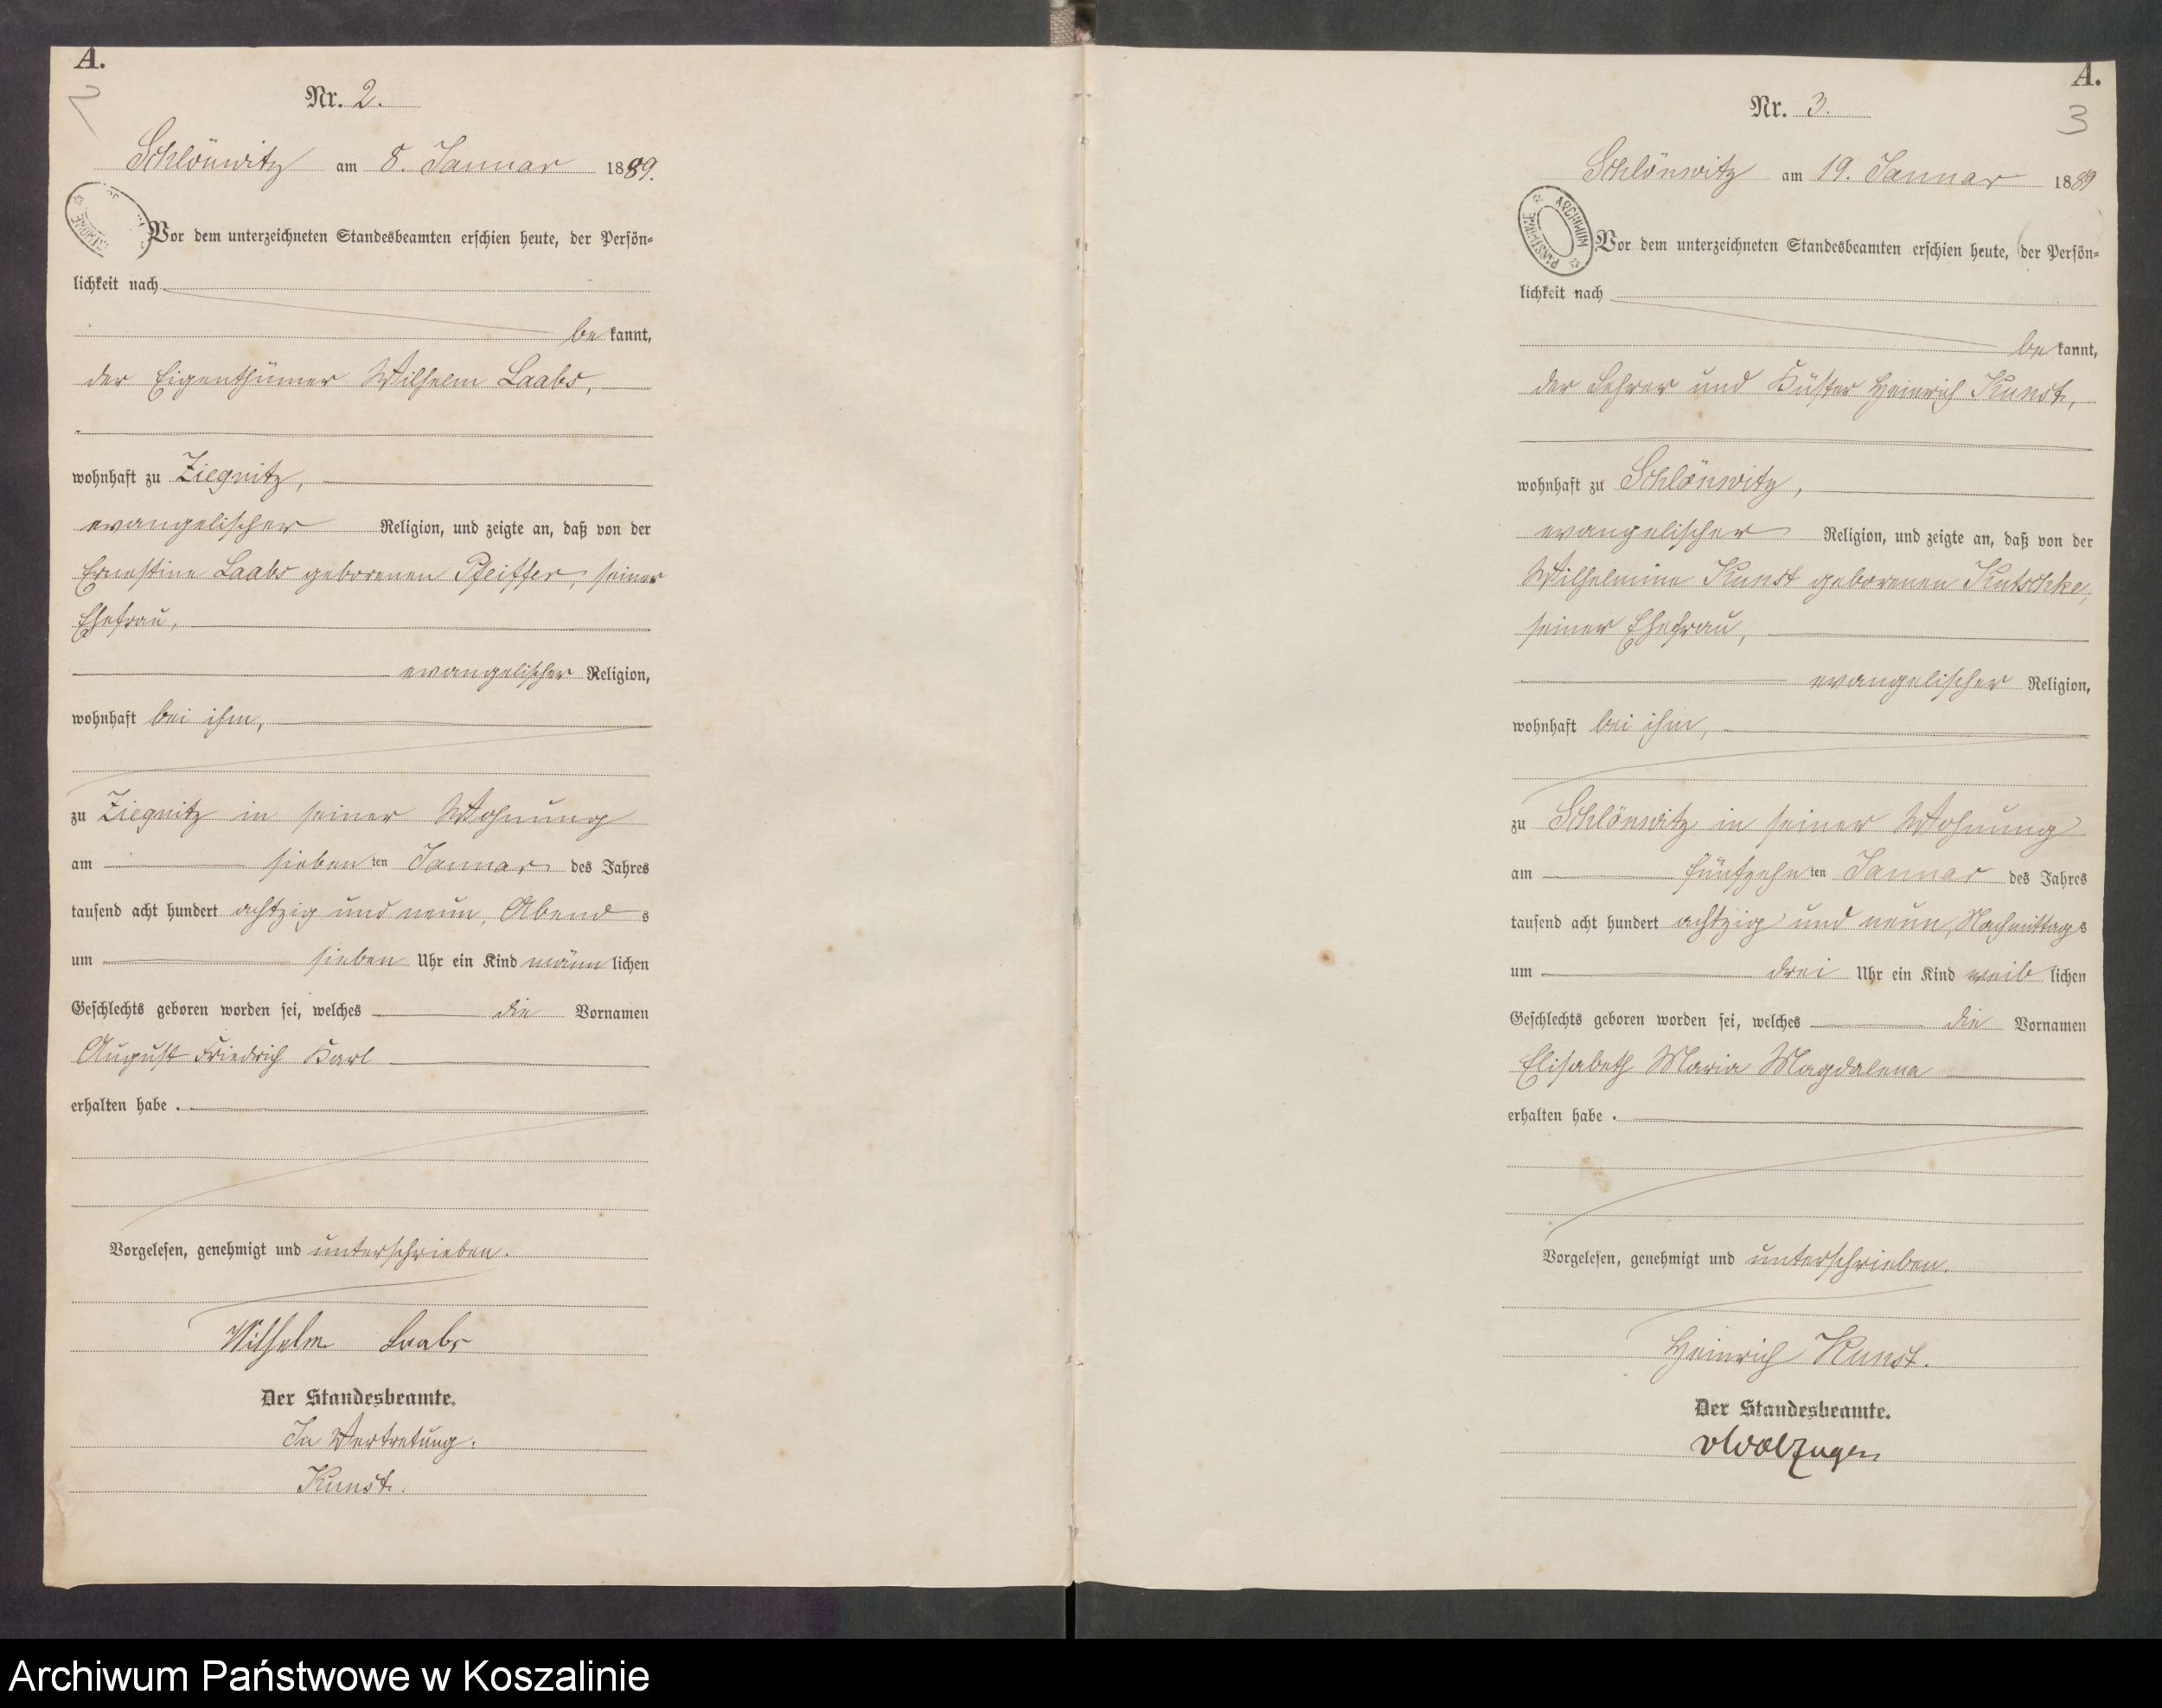 A.
2
Nr. 2.
Schlönwitz am 8. Januar 1889.
Vor dem unterzeichneten Standesbeamten erschien heute, der Persön=
lichkeit nach
be kannt,
der Eigenthümer Wilhelm Laabs,
wohnhaft zu Ziegnitz,
evangelischer Religion, und zeigte an, daß von der
Ernestine Laabs geborenen Pfeiffer, seiner
Ehefrau,
evangelischer Religion,
wohnhaft bei ihm,
zu Ziegnitz in seiner Wohnung
am siebenten Januar des Jahres
tausend acht hundert achtzig und neun, Abends
um sieben Uhr ein Kind männlichen
Geschlechts geboren worden sei, welches die Vornamen
August Friedrich Karl
erhalten habe.
Vorgelesen, genehmigt und unterschrieben.
Wilhelm Laabs
Der Standesbeamte.
In Vertretung.
Kunst.
A.
3
Nr. 3.
Schlönwitz am 19. Januar 1889
ARCHIWUM PAŃSTWOWE
Vor dem unterzeichneten Standesbeamten erschien heute, der Persön=
lichkeit nach
be kannt,
der Lehrer und Küster Heinrich Kunst,
wohnhaft zu Schlönwitz,
evangelischer Religion, und zeigte an, daß von der
Wilhelmine Kunst geborenen Kutschke,
seiner Ehefrau,
evangelischer Religion,
wohnhaft bei ihm,
zu Schlönwitz in seiner Wohnung
am fünfzehnten Januar des Jahres
tausend acht hundert achtzig und neun, Nachmittags
um drei Uhr ein Kind weiblichen
Geschlechts geboren worden sei, welches die Vornamen
Elisabeth Maria Magdalena
erhalten habe.
Vorgelesen, genehmigt und unterschrieben.
Heinrich Kunst.
Der Standesbeamte.
vWolzogen
Archiwum Państwowe w Koszalinie